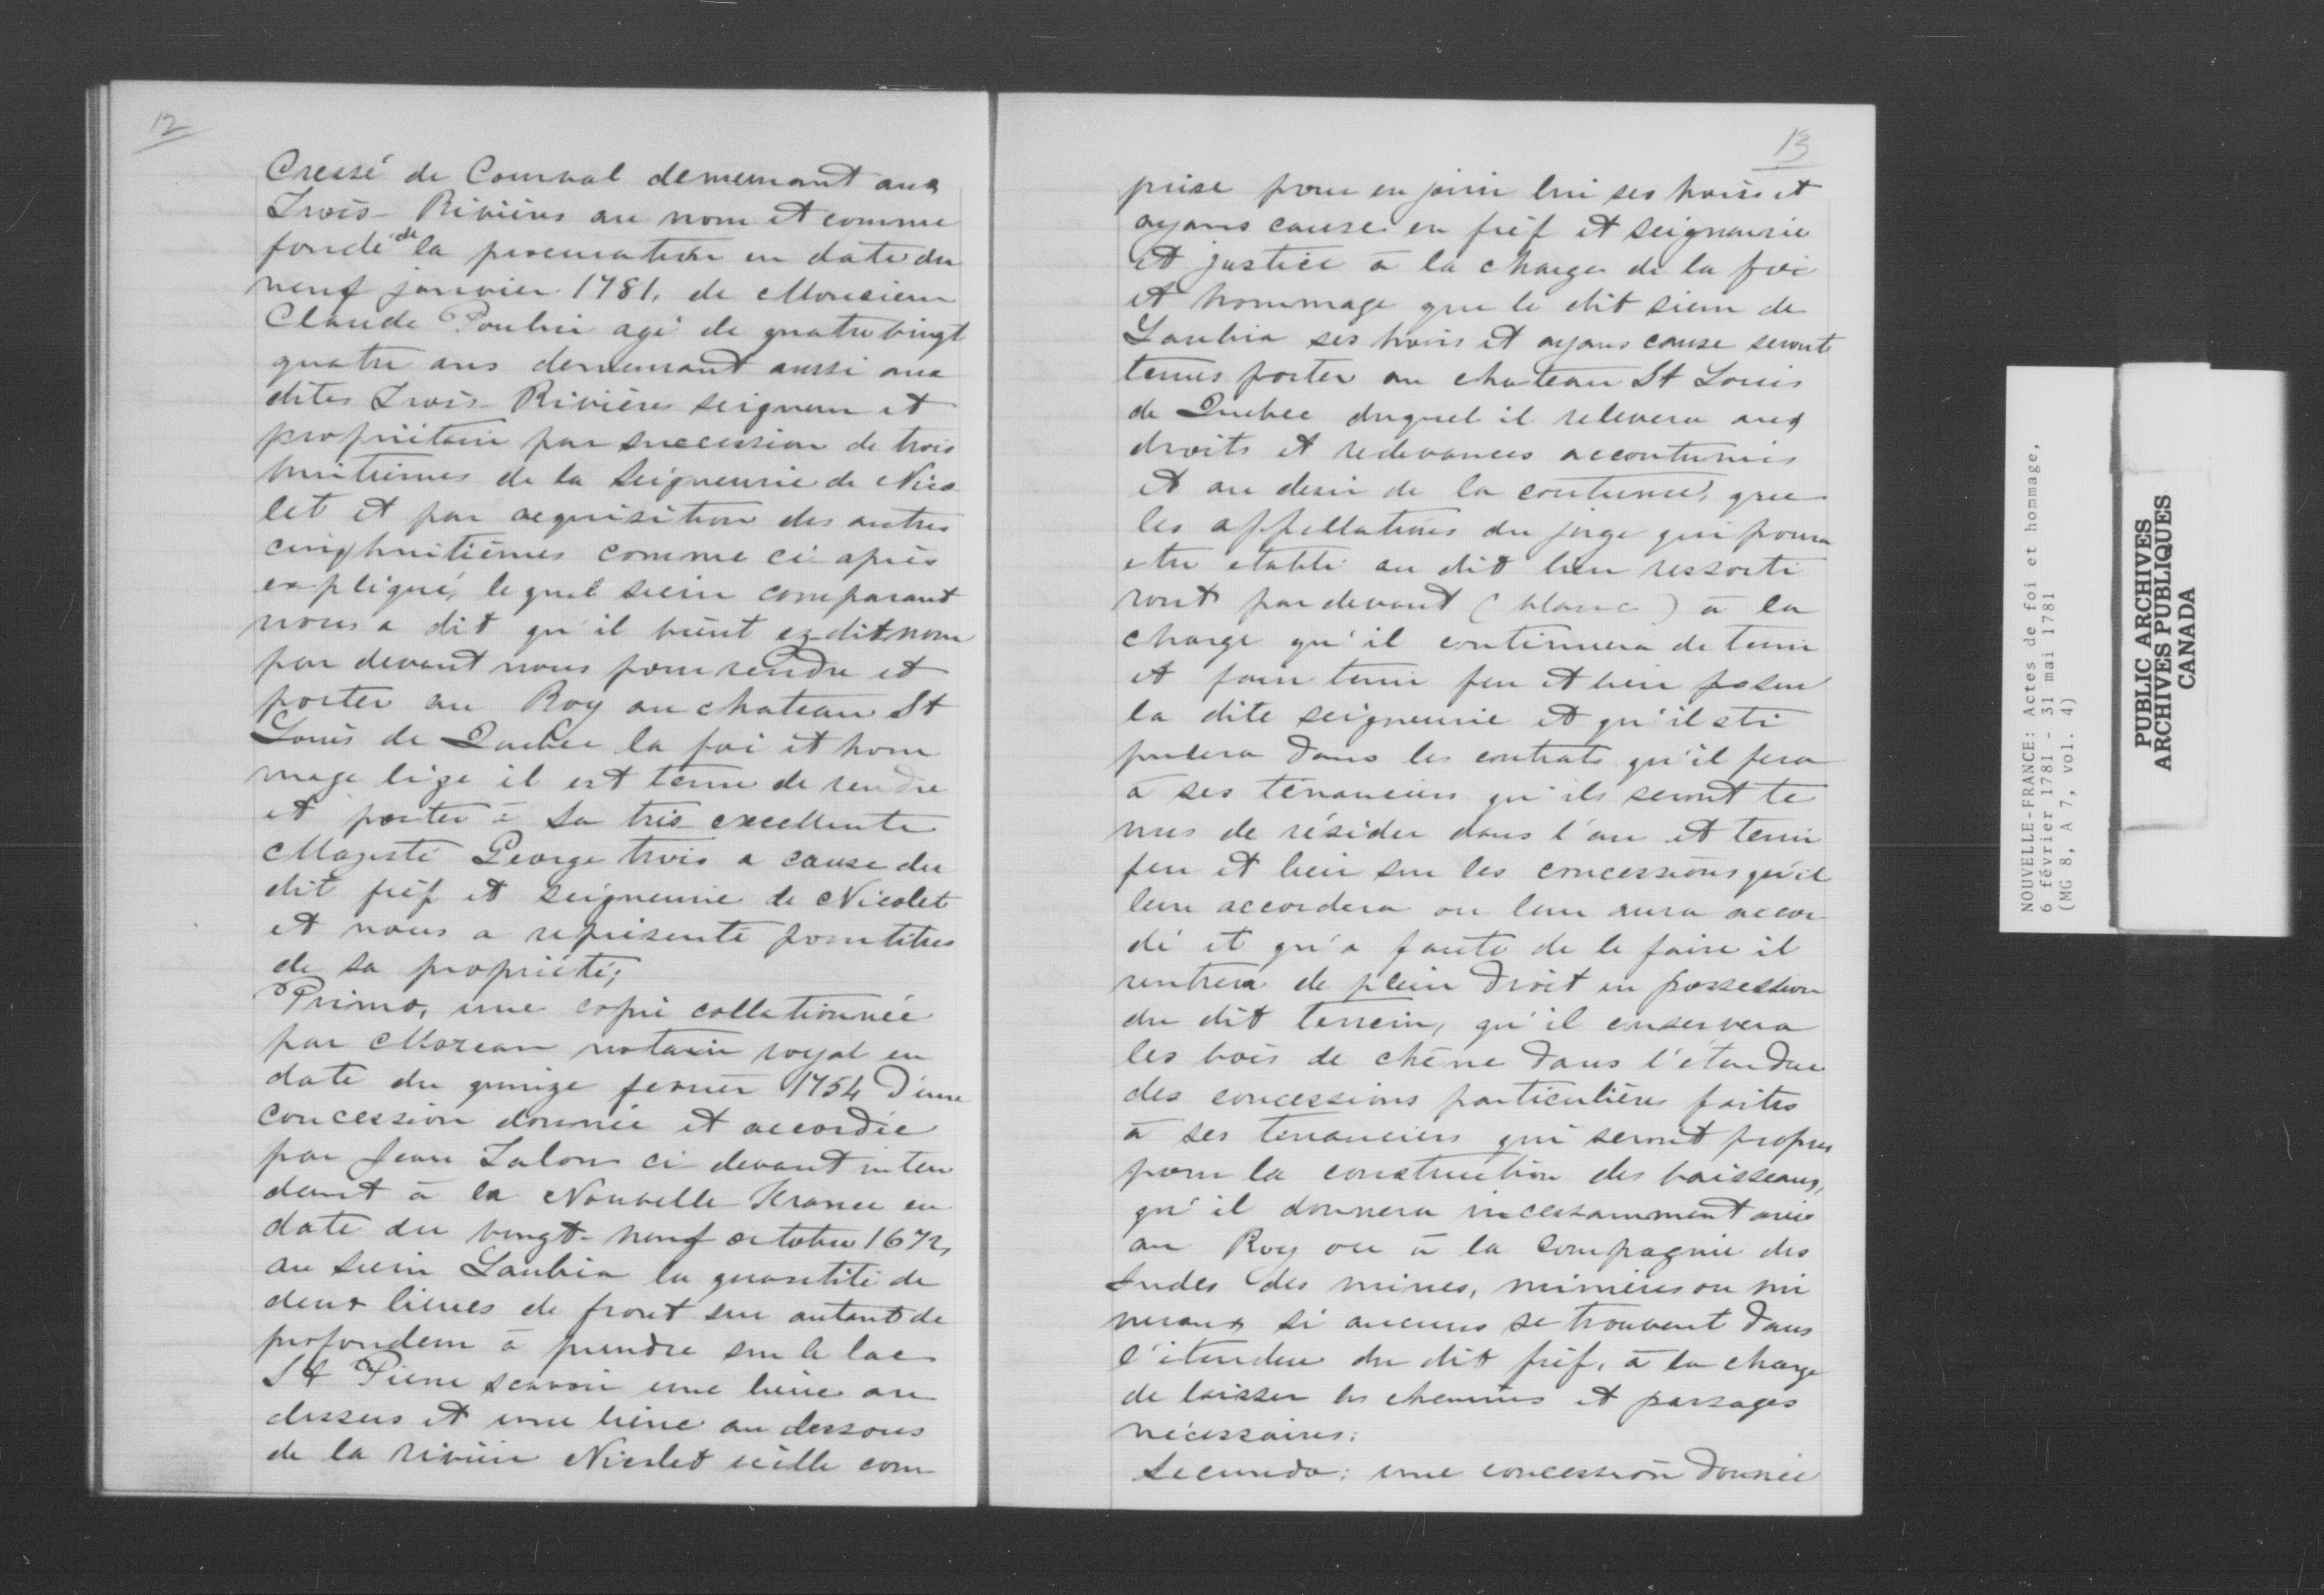 12
Cressé de Courval demeurant aux
Trois-Rivières au nom et comme
fondé de la procuration en date du
neuf janvier 1781, de Monsieur
Claude Poulin agé de quatre vingt
quatre ans demeurant aussi aux
dites Trois-Rivières seigneur et
propriétaire par succession de trois
huitièmes de la Seigneurie de Nico
let et par acquisition des autres
cinq huitièmes comme ci-après
expliqué, lequel sieur comparant
nous a dit qu'il vient ez dit nom
par devant nous pour rendre et
porter au Roy au chateau St
Louis de Quebec la foi et hom
mage lige il est tenu de rendre
et porter à Sa très excellente
Majesté George trois a cause du
dit fièf et seigneurie de Nicolet
et nous a représenté pour titres
de sa propriété;
Primo, une copie collationnée
par Moreau notaire royal en
date du quinze fevrier 1754 d'une
concession donnée et accordée
par Jean Talon ci devant inten
dant à la Nouvelle France en
date du vingt-neuf octobre 1672,
au sieur Laubia la quantité de
deux lieues de front sur autant de
profondeur à prendre sur le lac
St Pierre scavoir une lieue au
dessus et une lieue au dessous
de la rivière Nicolet icelle com
13
prise pour en jouir lui ses hoirs et
ayans cause en fièf et seigneurie
et justice à la charge de la foi
et hommage que le dit sieur de
Laubia ses hoirs et ayans cause seront
tenus porter au chateau St Louis
de Quebec duquel il relevera aux
droits et redevances accoutumés
et au desir de la coutume, que
les appellations du juge qui pourra
etre etabli au dit lieu ressorti
ront pardevant (blanc) à la
charge qu'il continuera de tenir
et faire tenir feu et lieu sur
la dite seigneurie et qu'il sti
pulera dans les contrats qu'il fera
à ses tenanciers qu'ils seront te
nus de résider dans l'an et tenir
feu et lieu sur les concessions qu'il
leur accordera ou leur aura accor
dé et qu'a faute de le faire il
rentrera de plein droit en possession
du dit terrein, qu'il conservera
les bois de chêne dans l'étendue
des concessions particulières faites
à ses tenanciers qui seront propres
pour la construction des vaisseaux,
qu'il donnera incessamment avis
au Roy ou à la Compagnie des
Indes des mines, minières ou mi
neraux si aucuns se trouvent dans
l'étendue du dit fief, à la charge
de laisser les chemins et passages
nécessaires.
Secundo: une concession donnée
NOUVELLE-FRANCE: Actes de foi et hommage,
6 février 1781 - 31 mai 1781
(MG 8, A 7, vol. 4)
PUBLIC ARCHIVES
ARCHIVES PUBLIQUES
CANADA